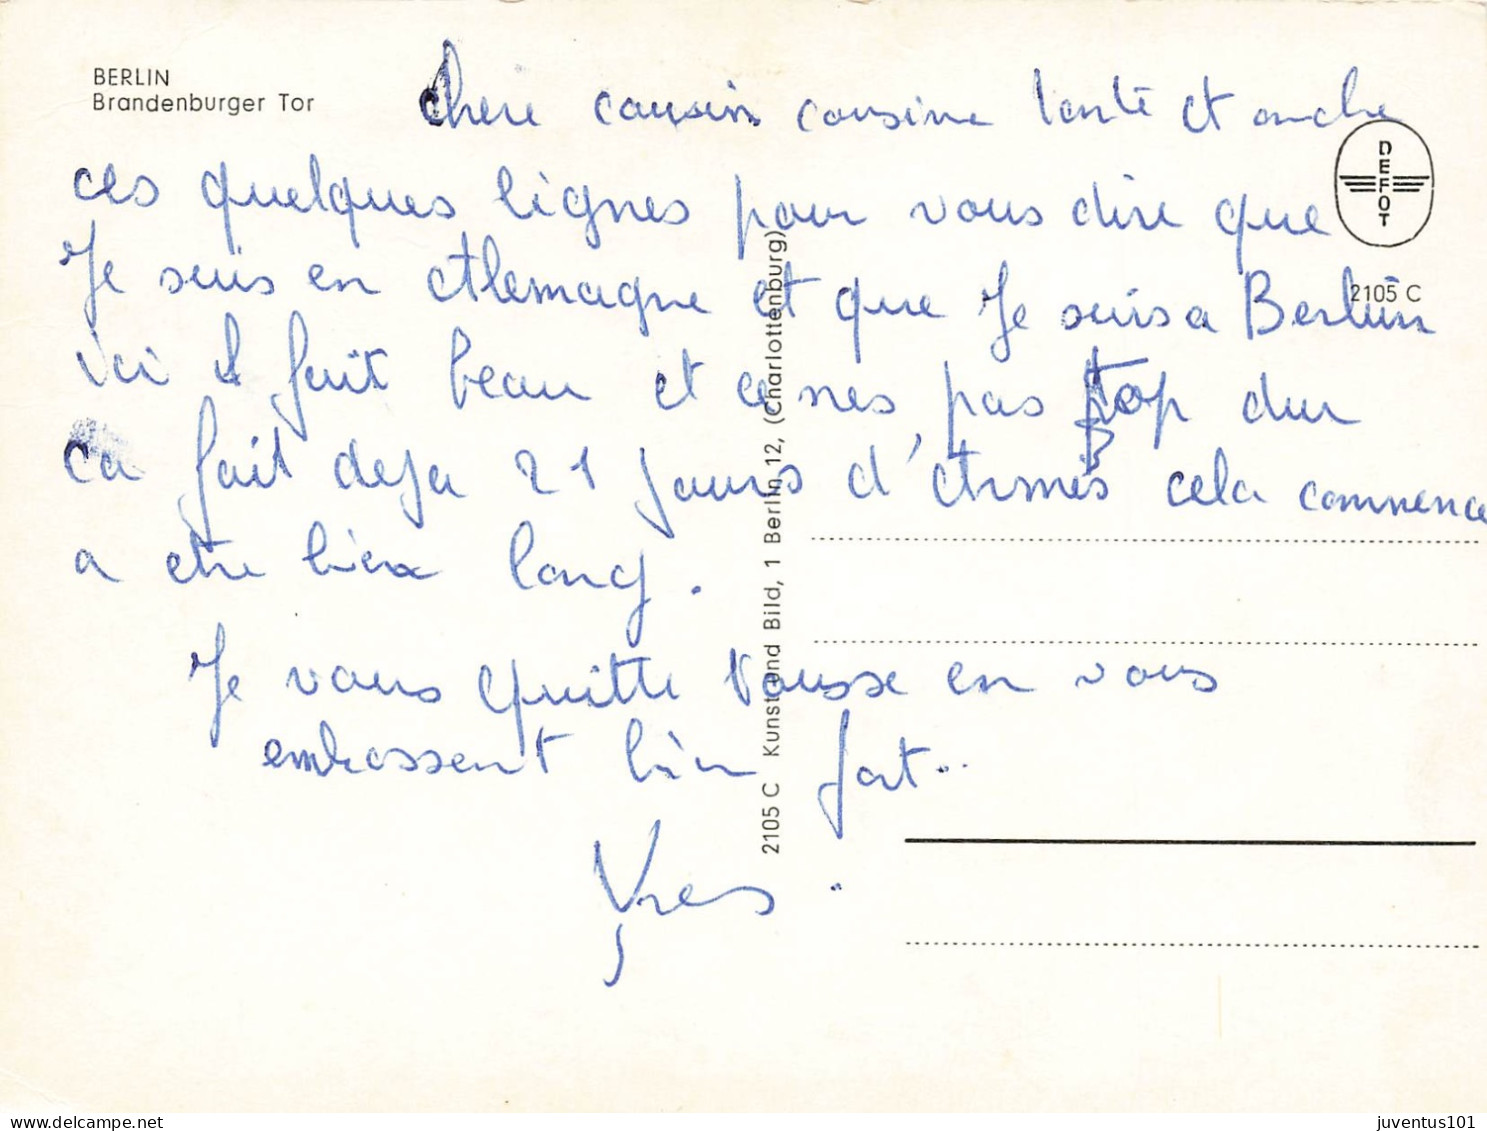 BERLIN
Brandenburger Tor
chere cousin cousine tante et oncle
ces quelques lignes pour vous dire que
Je suis en Allemagne et que Je suis a Berlin
ici il fait beau et ce nes pas trop dur
ca fait deja 21 jours d'Armés cela commence
a etre bien long.
Je vous quitte tousse en vous
embrassent bien fort..
Yves.
DEFOT
2105 C
2105 C Kunst und Bild, 1 Berlin 12, (Charlottenburg)
juventus101